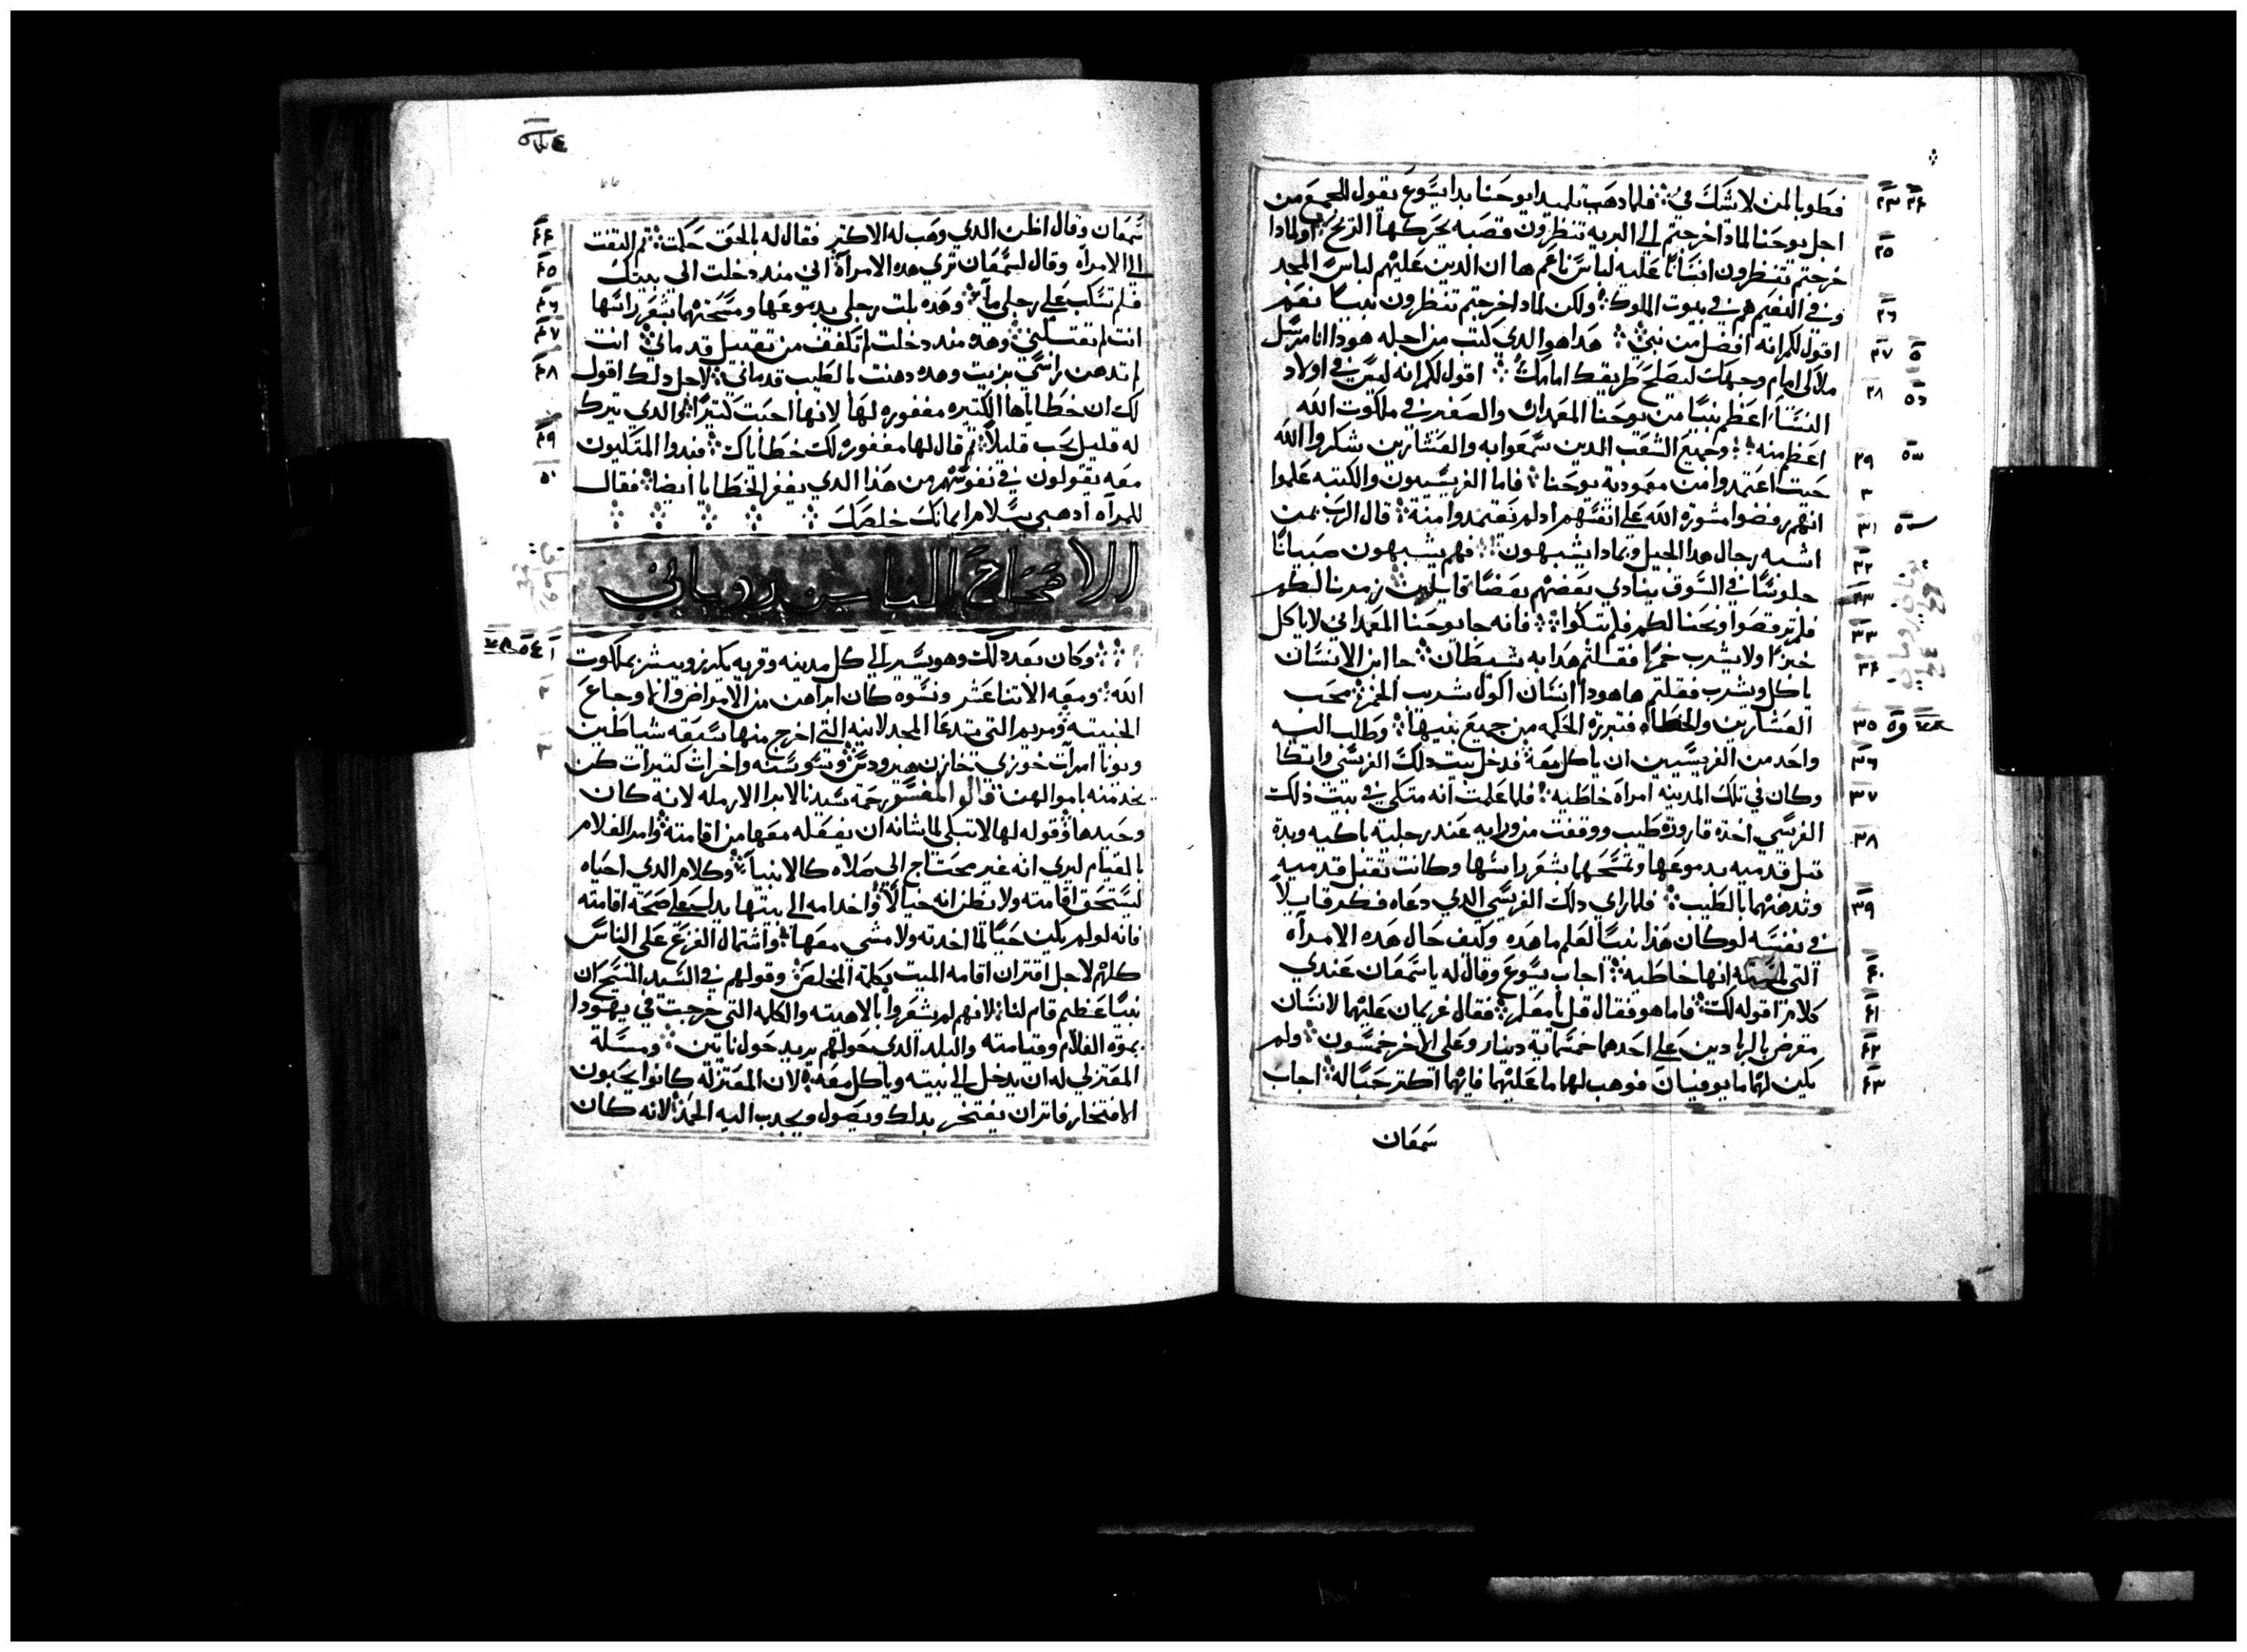 فطوبا لمن لا شك في فلما دهب تلميدا يوحنا بدا يسوع يقول للجميع من
اجل يوحنا لمادا خرجتم الى البريه تنظرون قصبه تحركها الريح اولمادا
خرجتم تنظرون انسانا عليه لباس ناعم ها ان الدين عليهم لباس المجد
وفي النعيم هم في بيوت الملوك ولكن لمادا خرجتم تنظرون نبيا نعم
اقول لكم انه افضل من نبي هدا هو الدي كتب من اجله هودا انا مرسل
ملاكي امام وجهك ليصلح طريقك امامك اقول لكم انه ليس في اولاد
النسا اعظم نبيا من يوحنا المعمدان والصغير في ملكوت الله
اعظم منه وجميع الشعب الدين سمعوا به والعشارين شكروا الله
حيت اعتمدوا من معمودية يوحنا فاما الفريسيون والكتبه علموا
انهم رفضوا مشورة الله على انفسهم اد لم يعتمدوا منه قال الرب بمن
اشبه رجال هدا الجيل وبمادا يشبهون فهم يشبهون صبيانا
جلوسا في السوق ينادي بعضهم بعضا قايلين زمرنا لكم
فلم ترقصوا ونحنا لكم فلم تبكوا فانه جا يوحنا المعمداني لا ياكل
خبزا ولا يشرب خمرا فقلتم هدا به شيطان جا ابن الانسان
ياكل ويشرب فقلتم ها هودا انسان اكول شريب الخمر محب
العشارين والخطاه فتبررة الحكمه من جميع بنيها وطلب اليه
واحد من الفريسيين ان ياكل معه فدخل بيت دلك الفريسي واتكا
وكان في تلك المدينه امراه خاطيه فلما علمت انه متكي في بيت ذلك
الفريسي اخدة قارورة طيب ووقفت من ورايه عند رجليه باكيه وبدة
تبل قدميه بدموعها وتمسحهما بشعر راسها وكانت تقبل قدميه
وتدهنهما بالطيب فلما راي دلك الفريسي الدي دعاه فكر قايلا
في نفسه لو كان هذا نبيا لعلم ما هده وكيف حال هده الامراه
التي لمسته انها خاطيه اجاب يسوع وقال له يا سمعان عندي
كلام اقوله لك فاما هو فقال قل يا معلم فقال غريمان عليهما لانسان
مقرض بالربا دين على احدهما خمسماية دينار وعلى الاخر خمسون ولم
يكن لهما ما يوفيان فوهب لهما ما عليهما فايهما اكتر حبا له اجاب
سمعان
سمعان وقال اظن الدي وهب له الاكتر فقال له بالحق حكمت تم التفت
الى الامراه وقال لسمعان تري هده الامراة اني مند دخلت الى بيتك
فلم تسكب على رجلي ماء وهده بلت رجلي بدموعها ومسحتهما بشعر راسها
انت لم تقبلني وهده مند دخلت لم تكفف من تقبيل قدماي انت
لم تدهن راسي بزيت وهده دهنت بالطيب قدماي لاجل دلك اقول
لك ان خطاياها الكتيره مغفوره لها لانها احبت كتيرا والدي يترك
له قليل يحب قليلا تم قال لها مغفورة لك خطاياك فبدوا المتكيون
معه يقولون في نفوسهم من هذا الدي يغفر الخطايا ايضا فقال
للمراه ادهبي بسلام ايمانك خلصك
الاصحاح التامن روماني
وكان بعد دلك وهو يسير الى كل مدينه وقريه يكرز ويبشر بملكوت
الله ومعه الاتنا عشر ونسوه كان ابراهن من الامراض والاوجاع
الخبيته ومريم التي تدعا المجدلانيه التي اخرج منها سبعه شياطين
ويونا امرات خوزي خازن هيرودس وسوسنه واخرات كتيرات كن
يخدمنه باموالهن قال المفسر رحمة سيدنا لابن الارمله لانه كان
وحيدها وقوله لها لا تبكي لما شانه ان يفعله معها من اقامته وامر الغلام
بالقيام ليري انه غير محتاج الى صلاه كالانبيا وكلام الدي احياه
ليتحقق اقامته ولا يظن انه خيالا واخد امه الى بيتها يدل على صحة اقامته
فانه لو لم يكن حيا لما اخدته ولا مشى معها واشتمال الفزع على الناس
كلهم لاجل اقتران اقامه الميت بكلمة المخلص وقولهم في السيد المسيح ان
نبيا عظيم قام لنا لانهم لم يشعروا بالاهيته والكلمه التي خرجت في يهودا
بموة الغلام وقيامته والبلد الدي حولهم يريد حول نايين ومسلة
المعتزلي له ان يدخل الى بيته وياكل معه لان المعتزله كانوا يحبون
الافتخار فاتران يفتخر بدلك ويصول ويجدب اليه الحمد لانه كان